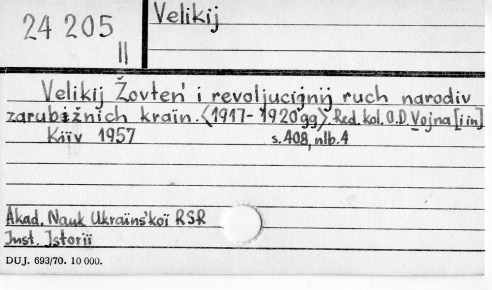 24 205
II
Velikij
Velikij Žovten' i revoljucijnij ruch narodiv
zarubižnich kraïn. <1917-1920 gg> Red. kol. O.D. Vojna [i in]
Kiïv 1957 s. 408, nlb. 4
Akad. Nauk Ukraïns'koï RSR
Inst. Istoriï
DUJ. 693/70. 10 000.